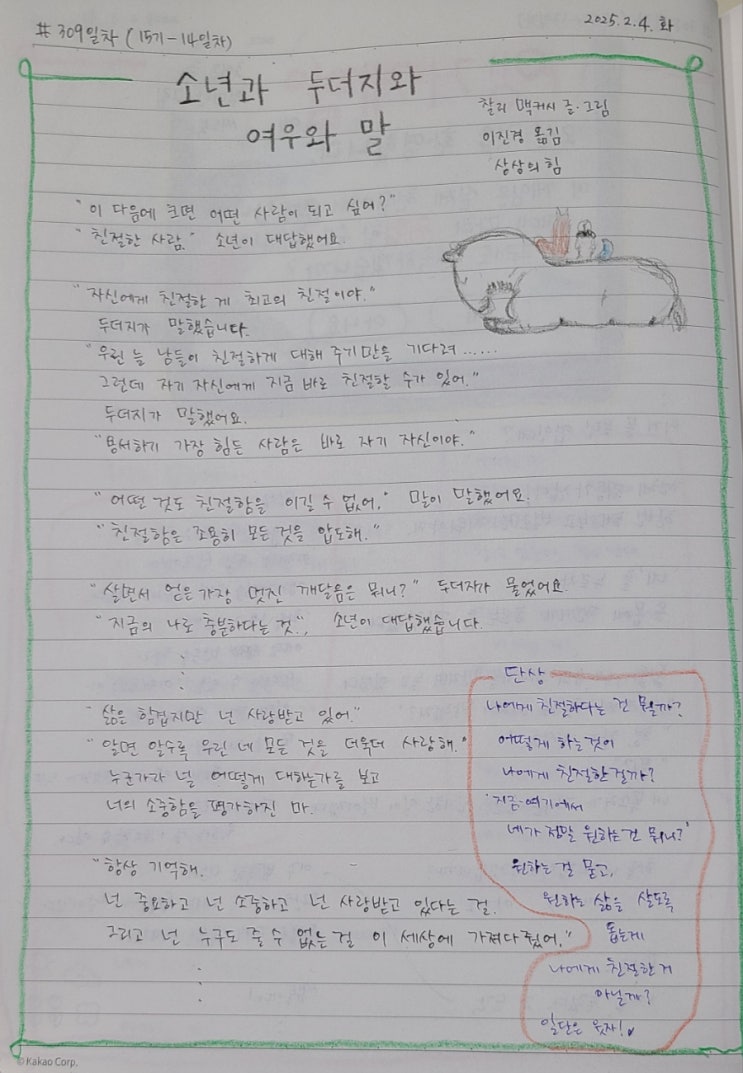 # 309일차 (15기-14일차)
2025.2.4. 화
소년과 두더지와
여우와 말
찰리 맥커시 글·그림
이진경 옮김
상상의힘
"이 다음에 크면 어떤 사람이 되고 싶어?"
"친절한 사람." 소년이 대답했어요.
"자신에게 친절한 게 최고의 친절이야."
두더지가 말했습니다.
"우린 늘 남들이 친절하게 대해 주기만을 기다려......
그런데 자기 자신에게 지금 바로 친절할 수가 있어."
두더지가 말했어요.
"용서하기 가장 힘든 사람은 바로 자기 자신이야."
"어떤 것도 친절함을 이길 수 없어," 말이 말했어요.
"친절함은 조용히 모든 것을 압도해."
"살면서 얻은 가장 멋진 깨달음은 뭐니?" 두더지가 물었어요.
"지금의 나로 충분하다는 것", 소년이 대답했습니다.
"삶은 힘겹지만 넌 사랑받고 있어."
"알면 알수록 우린 네 모든 것을 더욱더 사랑해."
누군가가 널 어떻게 대하는가를 보고
너의 소중함을 평가하진 마.
"항상 기억해.
넌 중요하고 넌 소중하고 넌 사랑받고 있다는 걸.
그리고 넌 누구도 줄 수 없는 걸 이 세상에 가져다 줬어."
단상
나에게 친절하다는 건 뭘까?
어떻게 하는 것이
나에게 친절한 걸까?
'지금·여기에서
네가 정말 원하는 건 뭐니?'
원하는 걸 묻고,
원하는 삶을 살도록
돕는게
나에게 친절한 거
아닐까?
일단은 웃자!
© Kakao Corp.